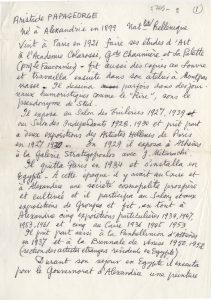 Aristide PAPAGEORGE
Né à Alexandrie en 1899 Nat^lité Hellénique
Vint à Paris en 1921 faire ses études d'Art
à l'Académie Colarossi, G^de Chaumière et la Palette
fit aussi des copies au Louvre
et travailla ensuite dans son atelier à Montpar-
nasse. Il dessina parfois dans des Jour-
naux humoristiques comme le "Rire", sous le
pseudonyme de Stel.
Il exposa au Salon des Tuileries 1927, 1929 et
au Salon des Indépendants 1928, 1930 et prit part
à deux expositions des Artistes Hellènes de Paris
en 1927 En 1929 il exposa à Athènes
à la Galerie Stratigopoulos avec
Il quitta Paris en 1932 et s'installa en
Egypte. A cette époque il y avait au Caire et
à Alexandrie une société cosmopolite prospère
et cultivée. Il participa au Salon comme
expositions de Groupes et fit en tout à
Alexandrie cinq expositions particulières 1934, 1947,
1953, 1961 et cinq au Caire 1936 1945 1953
Il prit part aussi à la Panhellinion d'Athènes
en 1937 et à la Biennale de Venise 1950, 1952
(section des artistes étrangers résidents en Egypte)
Durant son séjour en Egypte il exécuta
pour le Gouvernorat d'Alexandrie une peinture